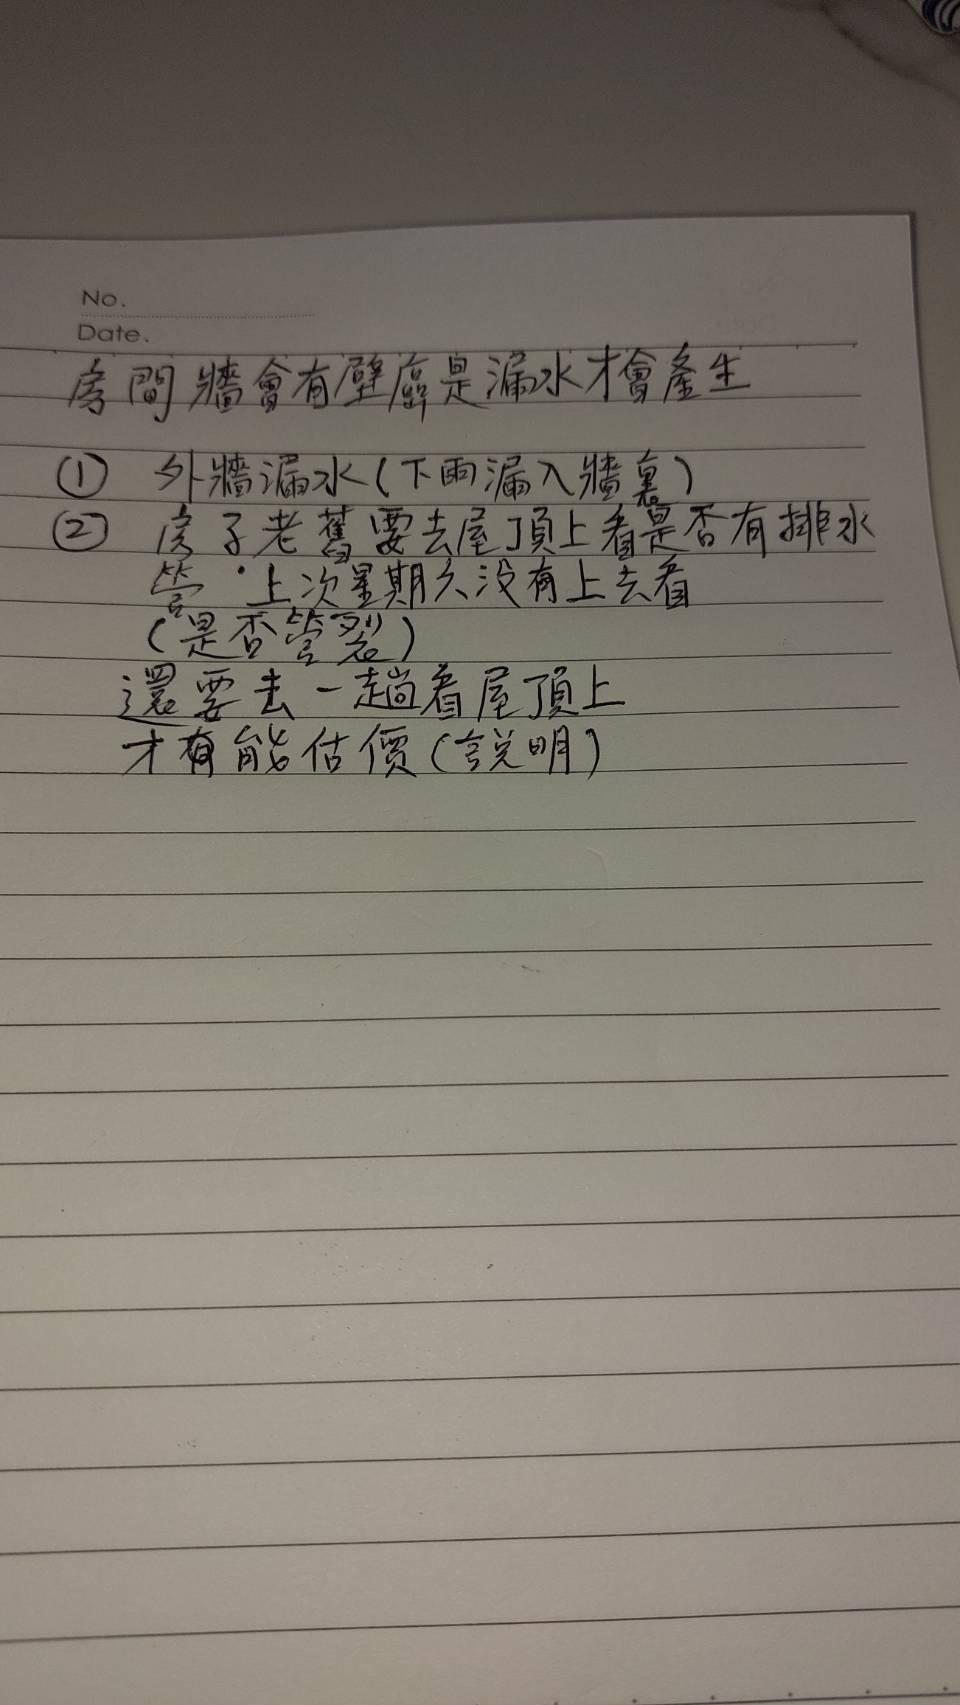 No.
Date.
房間牆會有壁癌是漏水才會產生
① 外牆漏水(下雨漏入牆裏)
② 房子老舊要去屋頂上看是否有排水
管·上次星期六沒有上去看
(是否管裂)
還要去一趟看屋頂上
才有能估價(說明)